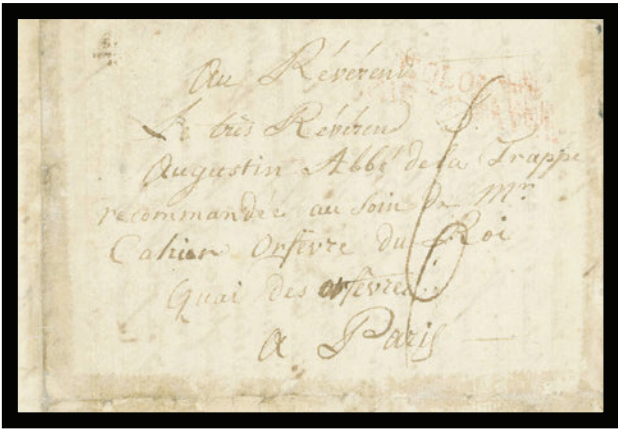 Au Révérend
Le très Révérend P.
Augustin Abbé de la Trappe
recommandée au soin de Mr.
Cahier Orfèvre du Roi
Quai des orfèvres
a Paris